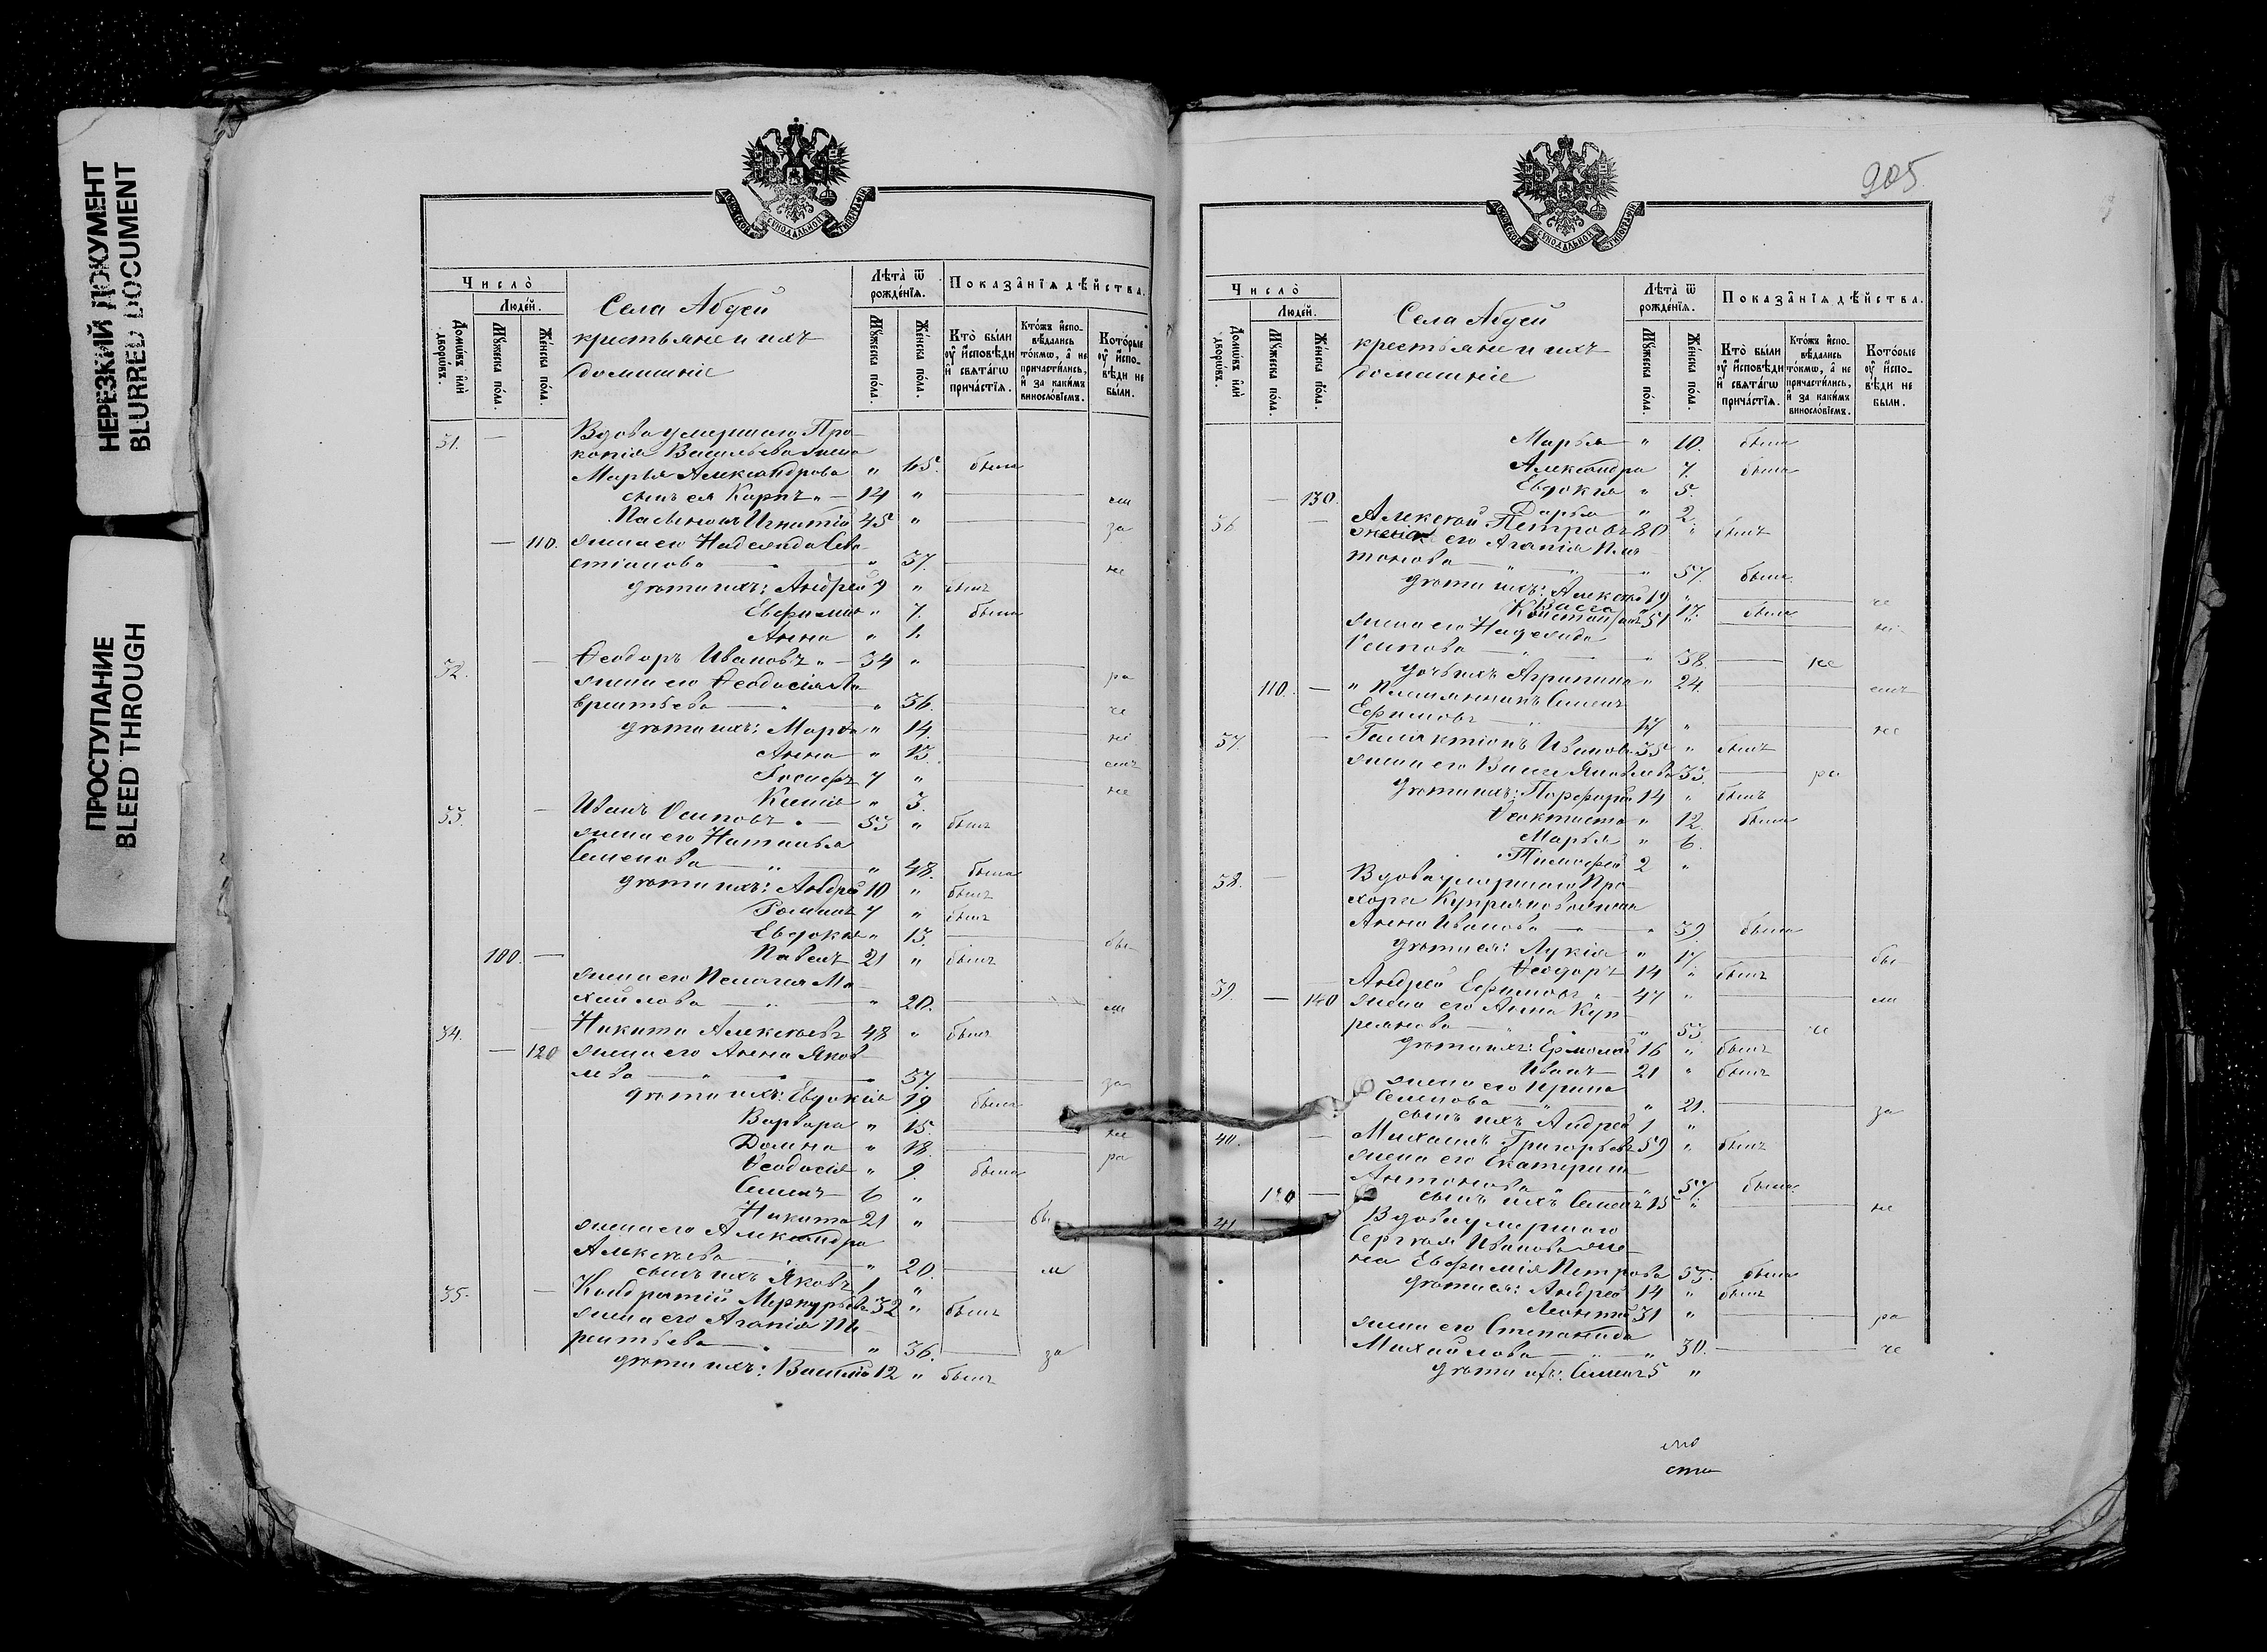 НЕРЕЗКИЙ ДОКУМЕНТ
BLURRED DOCUMENT
ПРОСТУПАНИЕ
BLEED THROUGH
МОСКОВСКОЙ СѴНОДАЛЬНОЙ ТИПОГРАФІИ
Число̀
Людей.
Домѡвъ илѝ дворѡвъ.
Мꙋжеска пола.
Женска пола.
Села Абуей
крестьяне и ихъ
домашніе
Лѣта̀ ѿ рожденїя.
Мꙋжеска пола.
Женска пола.
Показанїя дѣйства.
Кто̀ были ᲂу҆ исповѣди и свѧтагѡ причастїя.
Ктожъ исповѣдались токмѡ, а҆ не причастились, и҆ за какимъ винословїемъ.
Которые ᲂу҆ исповѣди не были.
31. — Вдова умершаго Про-
копія Васильева жена
Марья Александрова " 45. была
сынъ ея Карпъ " — 14 "
Пасынокъ Игнатій 45 " за
— 110. жена его Надежда Сева-
стіанова " 37. не
дѣти ихъ: Андрей 9 " былъ
Евфимія " 7. была
Анна " 1.
32. — Ѳеодоръ Ивановъ " — 34 " ра
жена его Ѳеодосія Ла-
врентьева — " " 36. не
дѣти ихъ: Марѳа " 14. не
Анна " 13.
Іосифъ 7 " не
Ксенія " 3.
33. — Иванъ Осиповъ " — 53 " былъ
жена его Наталья
Семенова — " " 48. была
дѣти ихъ: Андрей 10 " былъ
Романъ 7 " былъ
Евдокія " 13. бы
100. — Павелъ 21 " былъ
жена его Пелагея Ми-
хайлова — " " 20. ла
34. — Никита Алексѣевъ 48 " былъ
— 120 жена его Анна Яков-
лева — " " 37. за
дѣти ихъ: Евдокія 19. была
Варвара " 15. не
Домна " 18. ра
Ѳеодосія " 9. была
Семенъ 6 "
Никита 21 " бы
жена его Александра
Алексѣева — " 20. ла
сынъ ихъ Яковъ 1 "
35. — Кондратій Меркурьевъ 32 " былъ
жена его Агапія Те-
рентьева — " " 36. за
дѣти ихъ: Василій 12 " былъ
905
МОСКОВСКОЙ СѴНОДАЛЬНОЙ ТИПОГРАФІИ
Число̀
Людей.
Домѡвъ илѝ дворѡвъ.
Мꙋжеска пола.
Женска пола.
Села Абуей
крестьяне и ихъ
домашніе
Лѣта̀ ѿ рожденїя.
Мꙋжеска пола.
Женска пола.
Показанїя дѣйства.
Кто̀ были ᲂу҆ исповѣди и свѧтагѡ причастїя.
Ктожъ исповѣдались токмѡ, а҆ не причастились, и҆ за какимъ винословїемъ.
Которые ᲂу҆ исповѣди не были.
Марья " 10. была
Александра 7. была
Евдокія " 5.
— 130. Дарья " 2.
36 — Алексѣй Петровъ 80 " былъ
жена его Агапія Пла-
тонова — " " 57. была
дѣти ихъ: Алексѣй 19 " не
Васса 17. была
Константинъ 51 " не
жена его Надежда
Осипова — " 38. не
дочь ихъ Агрипина " 24.
110. — " Племянникъ Семенъ
Ефимовъ — " 17 " не
37. — Галактіонъ Ивановъ 35 " былъ
жена его Васса Яковлева 33. ра
дѣти ихъ: Порфирій 14 " былъ
Ѳеоктиста " 12. была
Марья " 6.
Тимофей 2 "
38. — Вдова умершаго Про-
хора Купріянова жена
Анна Иванова — " " 39. была
дѣти ея: Лукія " 17. бы
Ѳеодоръ 14 " былъ
39. — 140 Андрей Ефимовъ " — 47 " ли
жена его Анна Куп-
реянова — " " 53. не
дѣти ихъ: Ермолай 16 " былъ
Иванъ — 21 " былъ
жена его Ирина
Семенова — " " 21. за
сынъ ихъ Андрей 1 "
40. — Михаилъ Григорьевъ 59 " былъ
жена его Екатерина
Антонова — 57. была
120 — сынъ ихъ Семенъ 15 " не
41. Вдова умершаго
Сергѣя Иванова же-
на Евфимія Петрова 55. была
дѣти ея: Андрей 14 " былъ
Леонтій 31 " ра
жена его Степанида
Михайлова — " " 30. не
дѣти ихъ: Семенъ 5 "